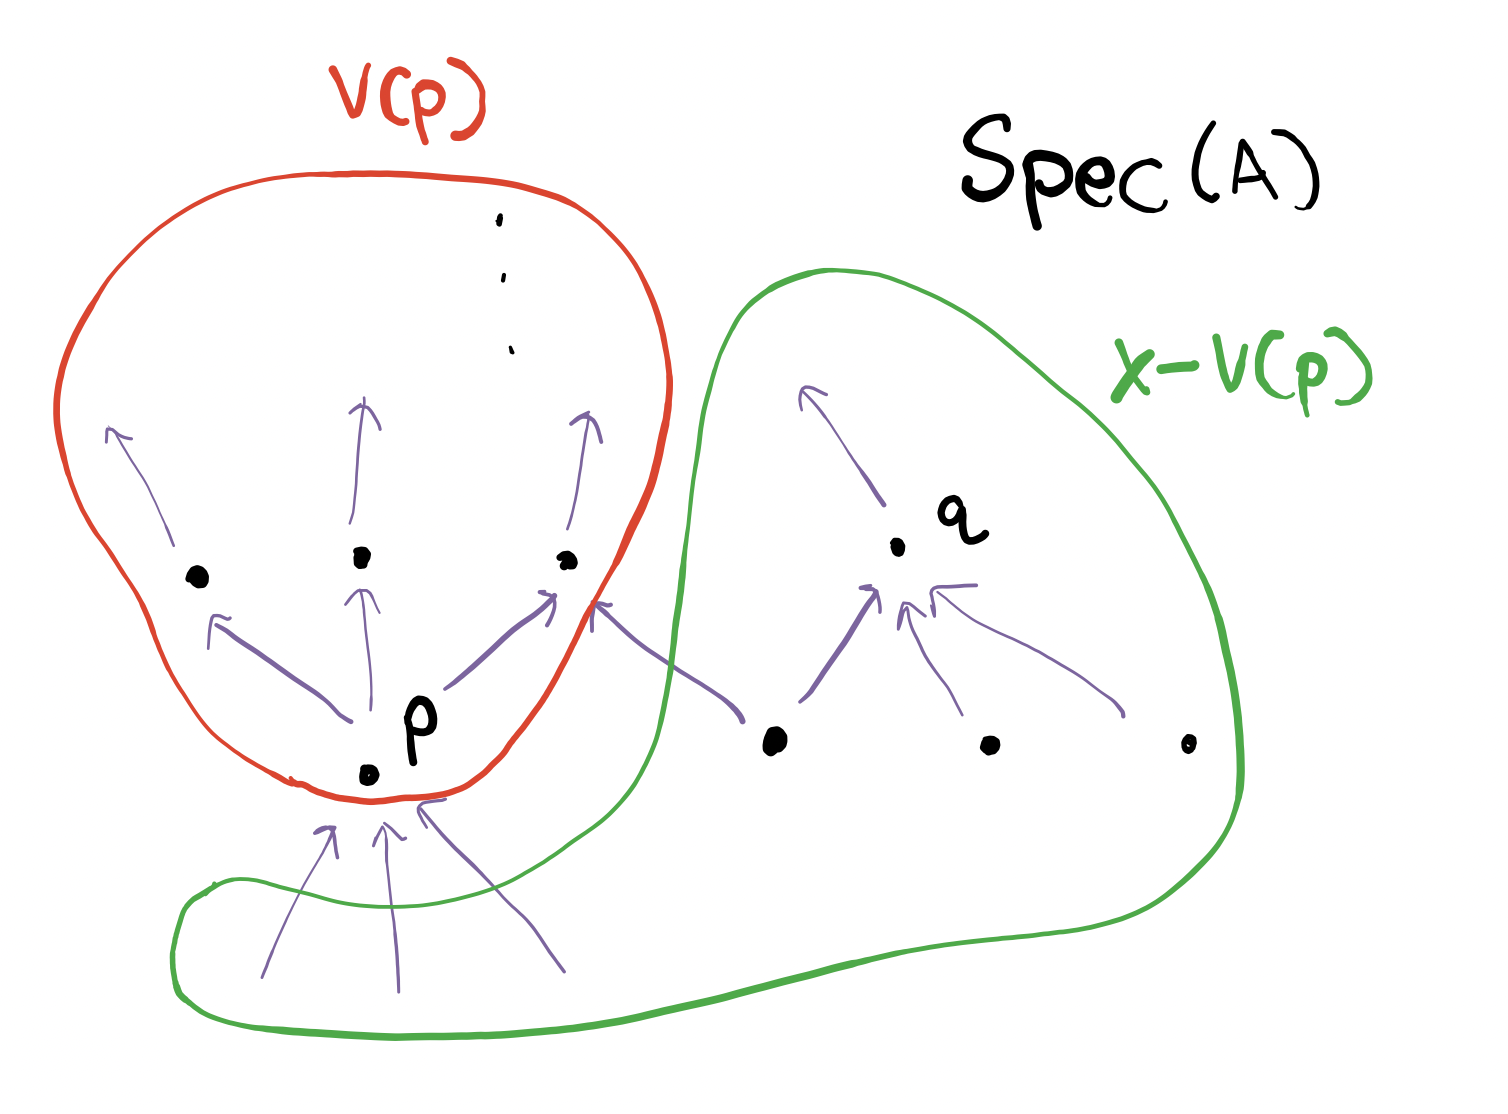 V(p)
Spec(A)
X-V(p)
q
p